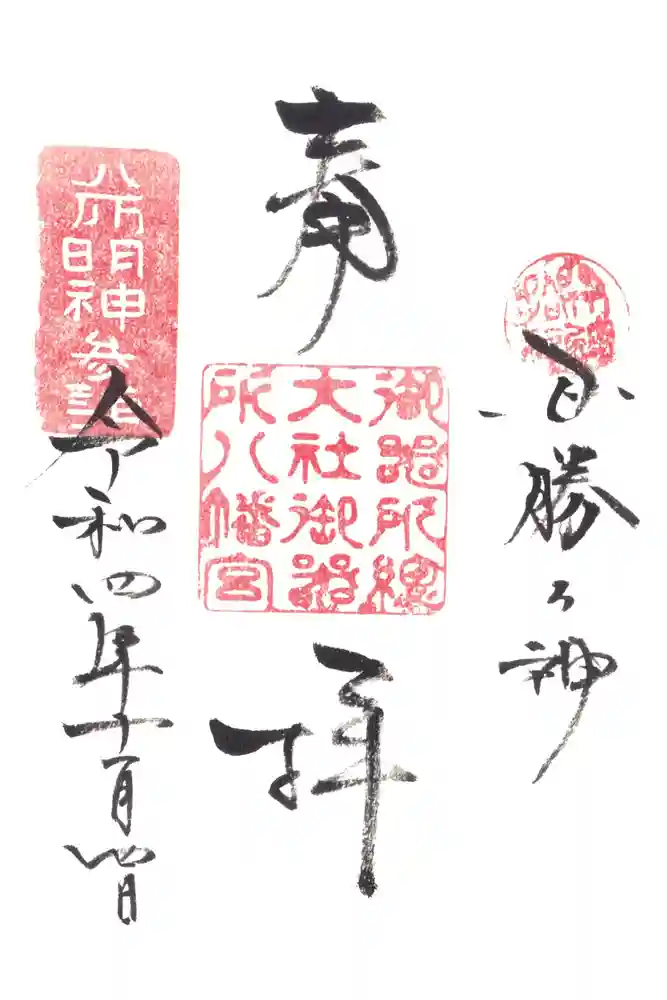 必勝の神
奉拝
御器所總
大社御器
所八幡宮
八所明神参詣
令和四年十一月四日